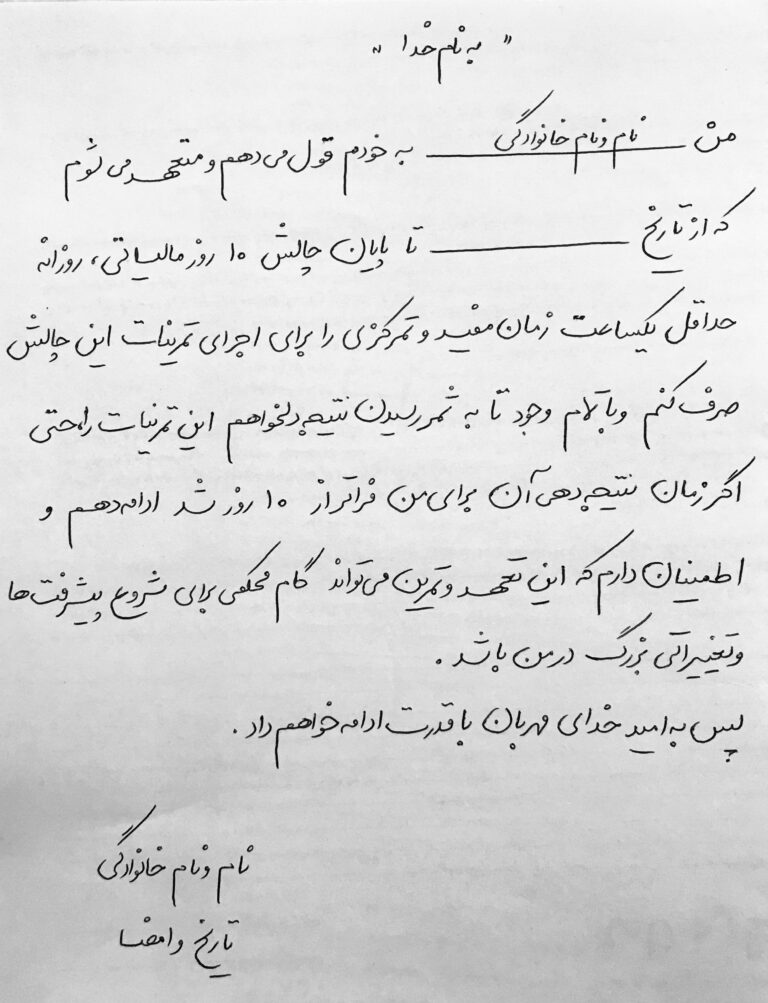 " به نام خدا "
من نام و نام خانوادگی به خودم قول می دهم و متعهد می شوم
که از تاریخ ــــــــــ تا پایان چالش ۱۰ روز مالیاتی، روزانه
حداقل یکساعت زمان مفید و تمرکزی را برای اجرای تمرینات این چالش
صرف کنم و با تمام وجود تا به ثمر رسیدن نتیجه دلخواهم این تمرینات را حتی
اگر زمان نتیجه دهی آن برای من فراتر از ۱۰ روز شد ادامه دهم و
اطمینان دارم که این تعهد و تمرین می تواند گام محکمی برای شروع پیشرفت ها
و تغییراتی بزرگ در من باشد.
پس به امید خدای مهربان با قدرت ادامه خواهم داد.
نام و نام خانوادگی
تاریخ و امضا